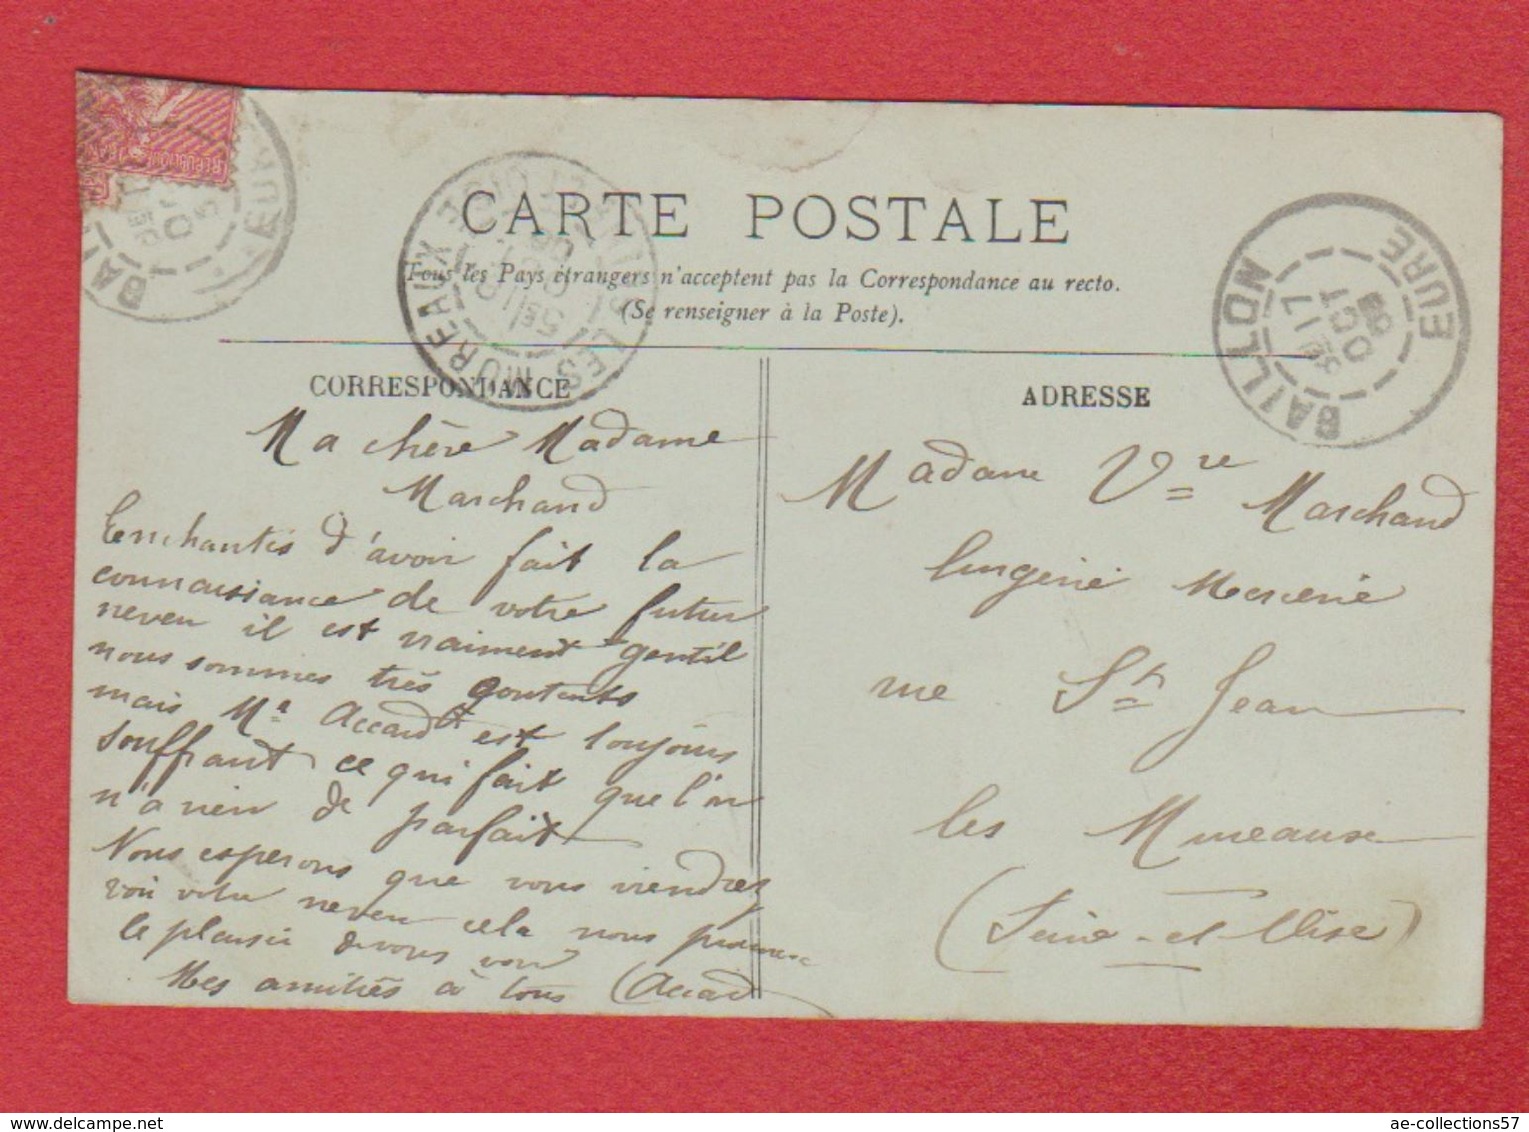 CARTE POSTALE
Tous les Pays étrangers n'acceptent pas la Correspondance au recto.
(Se renseigner à la Poste).
CORRESPONDANCE
Ma chère Madame
Marchand
Enchantés d'avoir fait la
connaissance de votre futur
neveu il est vraiment gentil
nous sommes très contents
mais Mr Accard est toujours
souffrant ce qui fait que l'on
n'a rien de parfait
Nous esperons que vous viendrez
voir votre neveu cela nous
le plaisir de vous voir
Mes amitiés à tous Accard
ADRESSE
Madame Vve Marchand
lingerie Mercerie
rue St Jean
les Mureaux
(Seine-et-Oise)
LES MUREAUX
BAILL NDL
EURE
17
OCT
08
RÉPUBLIQUE FRANÇ
ae-collections57